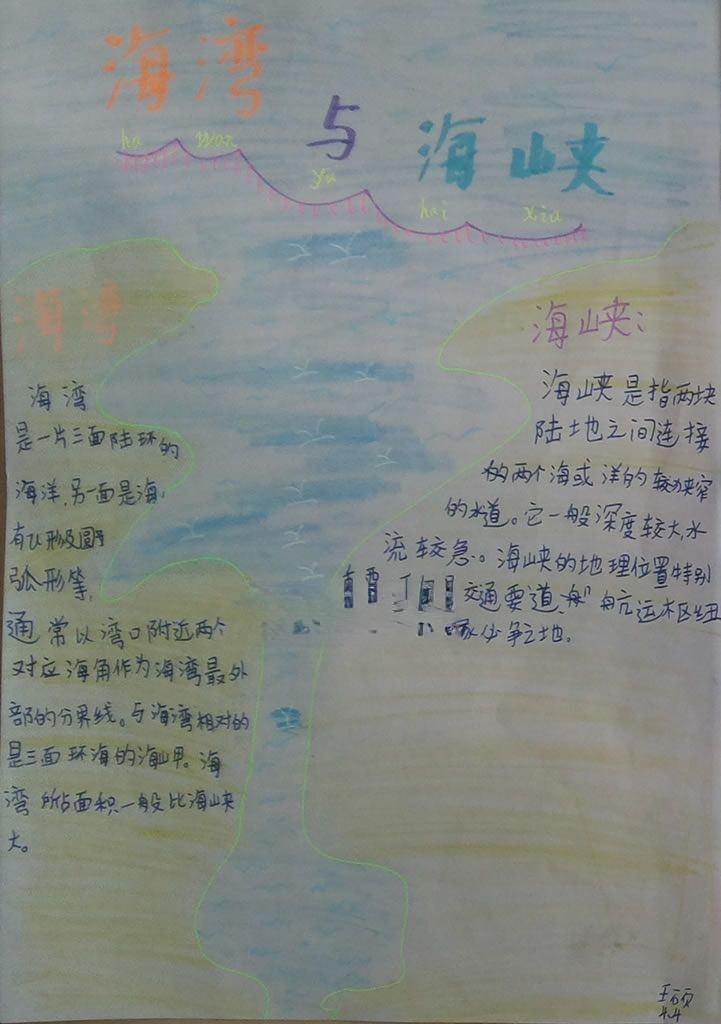 海湾
与
海峡
ha wan
yu
hai xia
海湾
海湾
是一片三面陆环的
海洋,另一面是海,
有U形及圆
弧形等,
通常以湾口附近两个
对应海角作为海湾最外
部的分界线。与海湾相对的
是三面环海的海岬。海
湾所占面积一般比海峡
大。
海峡:
海峡是指两块
陆地之间连接
的两个海或洋的较狭窄
的水道。它一般深度较大,水
流较急。海峡的地理位置特别
交通要道 航运枢纽
必争之地。
王硕
4.4